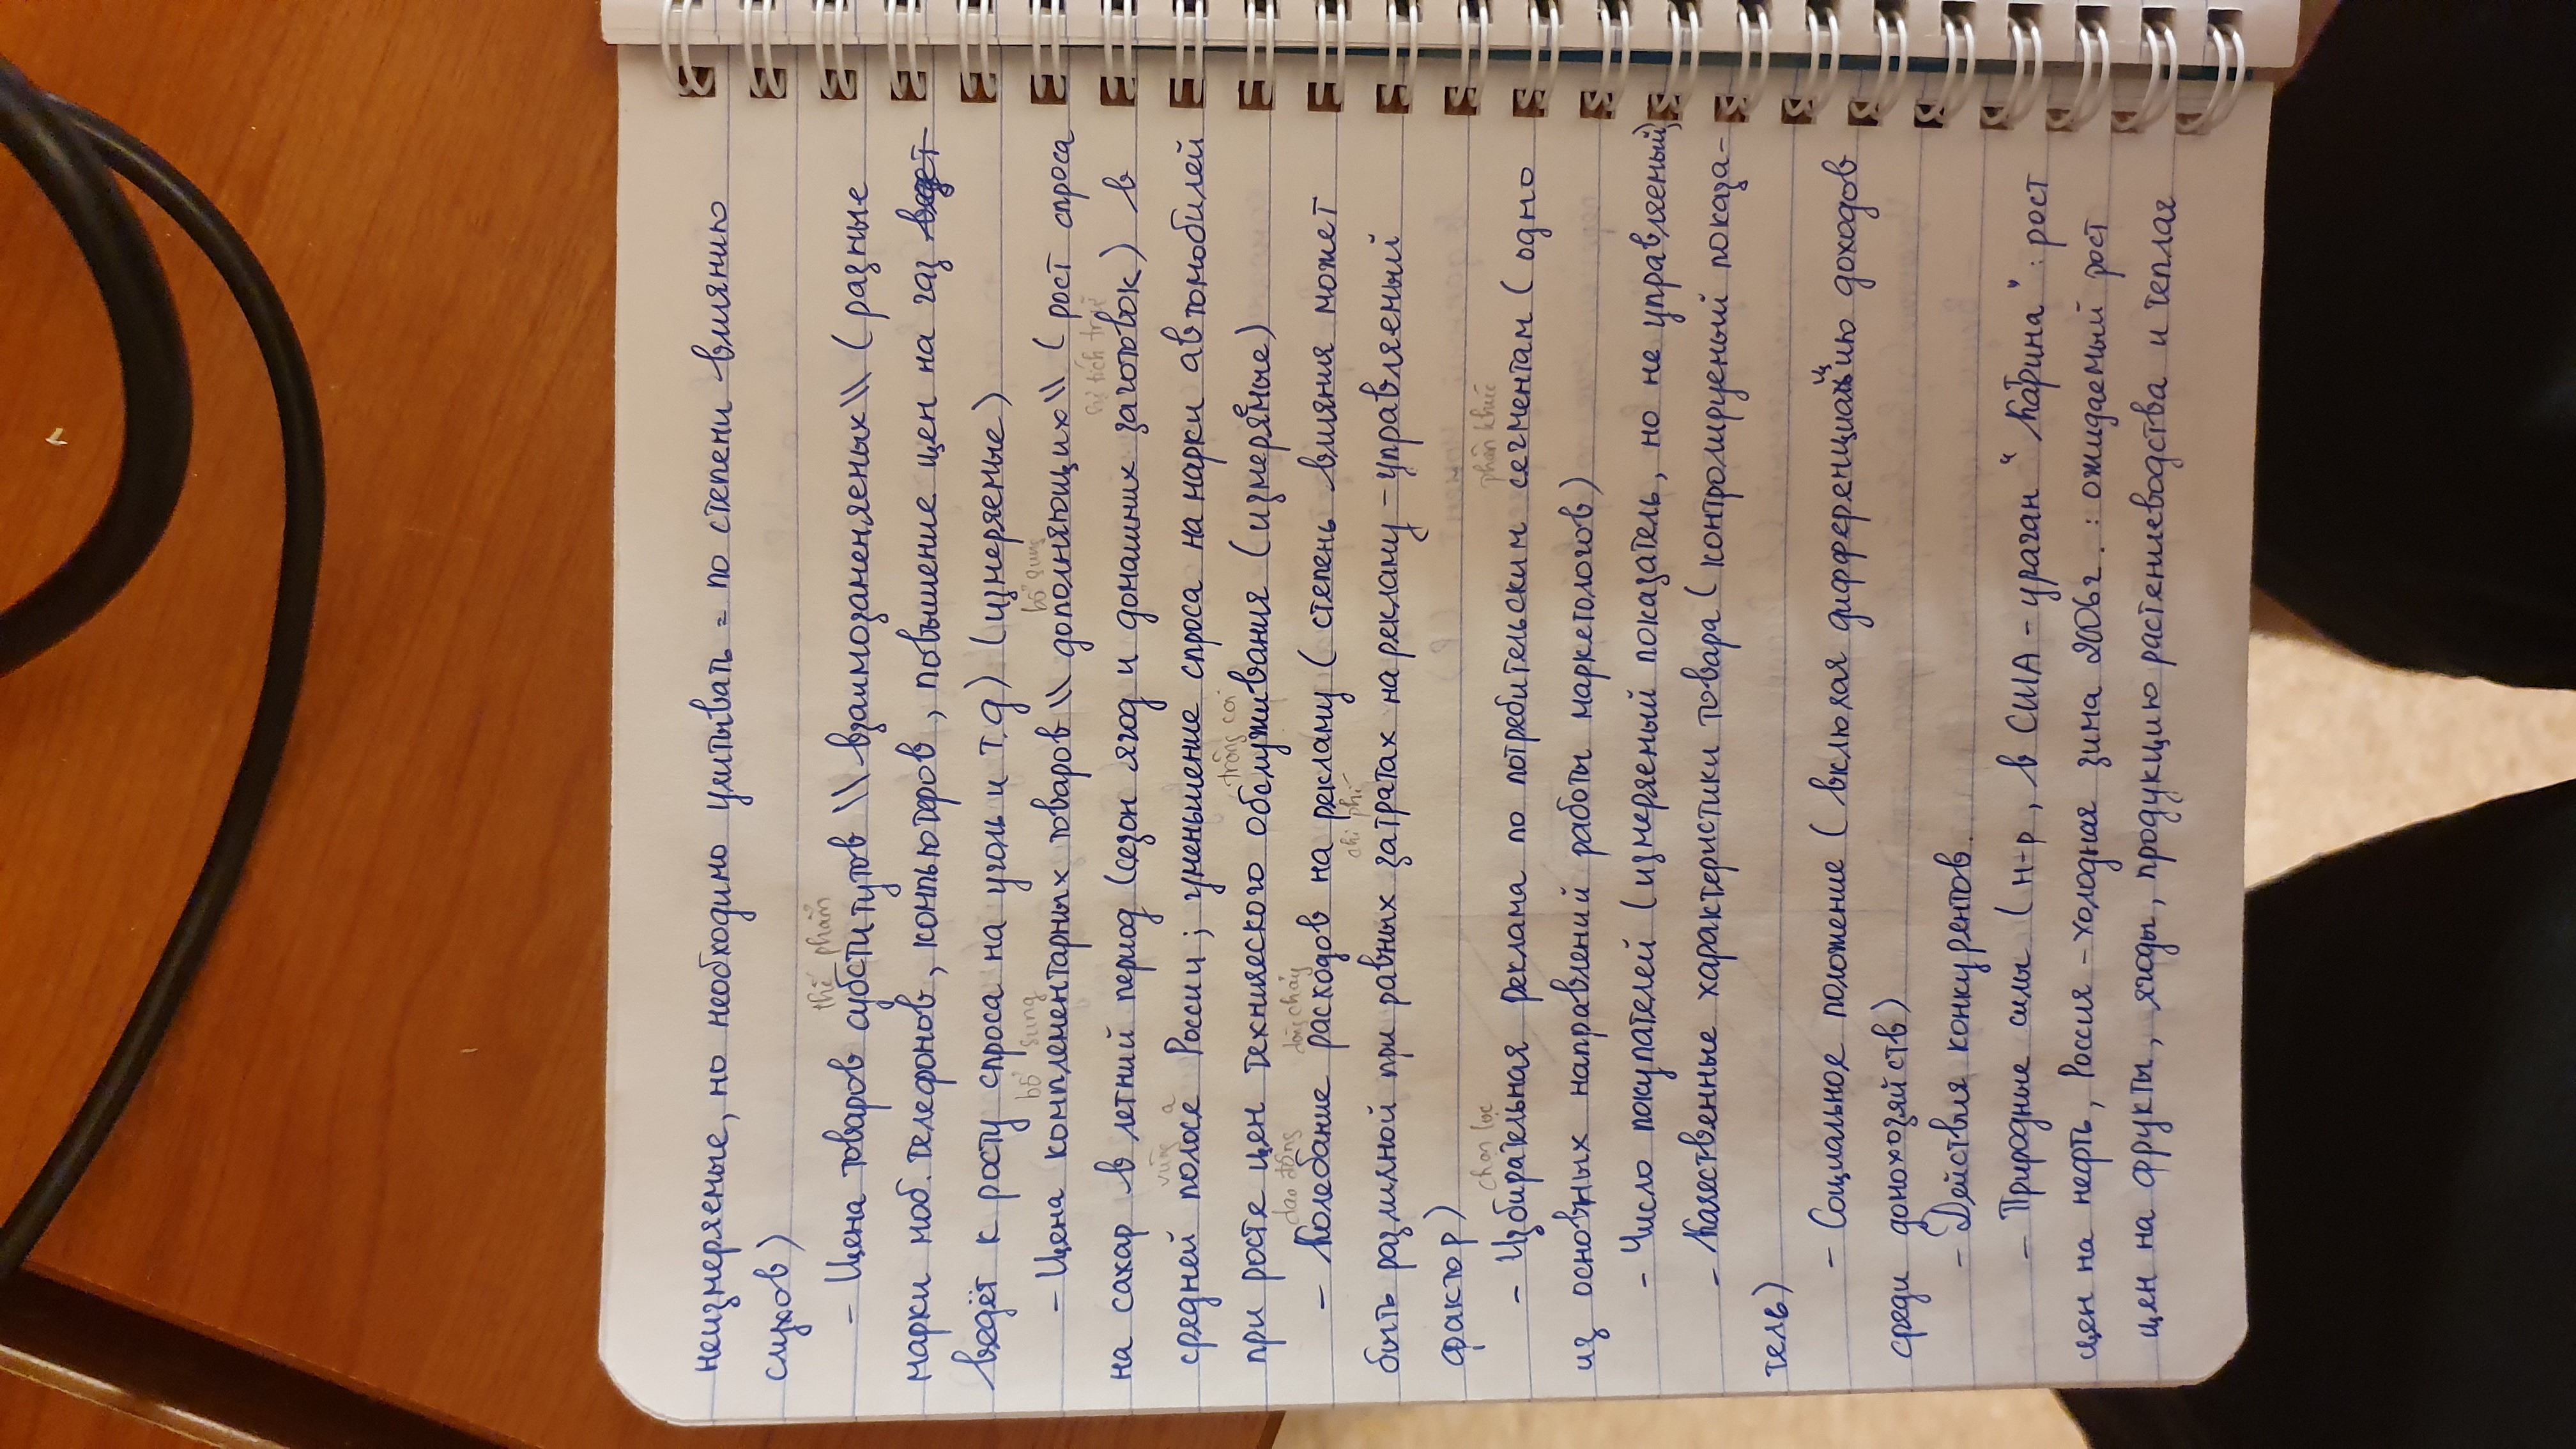 неизмеряемые, но необходимо учитывать = по степени влиянию
слухов)
thế phẩm
- Цена товаров субститутов \\ взаимозаменяемых \\ ( разные
марки моб. телефонов, компьютеров, повышение цен на газ ведет
ведёт к росту спроса на уголь и т.д) (измеряемые)
bổ sung bổ sung
- Цена комплементарных товаров \\ дополняющих \\ ( рост спроса
sự tích trữ
на сахар в летний период (сезон ягод и домашних заготовок) в
vùng
средней полосе России; уменьшение спроса на марки автомобилей
trông coi
при росте цен технического обслуживания (измеряемые)
dao động dòng chảy
- Колебание расходов на рекламу ( степень влияния может
chi phí
быть различной при равных затратах на рекламу - управляемый
фактор)
chọn lọc phân khúc
- Избирательная реклама по потребительским сегментам ( одно
из основных направлений работы маркетологов)
- Число покупателей (измеряемый показатель, но не управляемый)
- Качественные характеристики товара ( контролируемый показа-
тель)
- Социальное положение ( включая дифференциацию доходов
среди домохозяйств)
- Действия конкурентов.
- Природные силы ( н-р, в США - ураган "Катрина" : рост
цен на нефть, Россия - холодная зима 2006г. : ожидаемый рост
цен на фрукты, ягоды, продукцию растениеводства и теплая